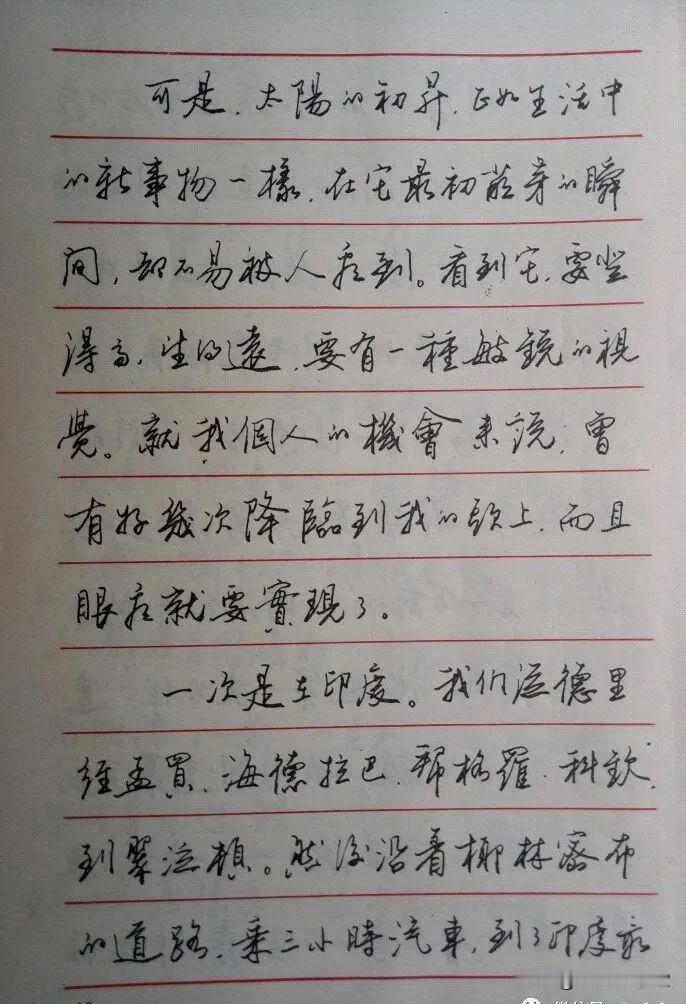 可是，太陽的初昇，正如生活中
的新事物一樣，在它最初萌芽的瞬
間，却不易被人看到。看到它，要登
得高，望的遠，要有一種敏銳的視
覺。就我個人的機會來説，曾
有好幾次降臨到我的頭上，而且
眼看就要實現了。
一次是在印度。我們從德里
經孟買、海德拉巴、帮格羅、科欽，
到翠泛頓。然後沿着椰林密布
的道路，乘三小時汽車，到了印度最